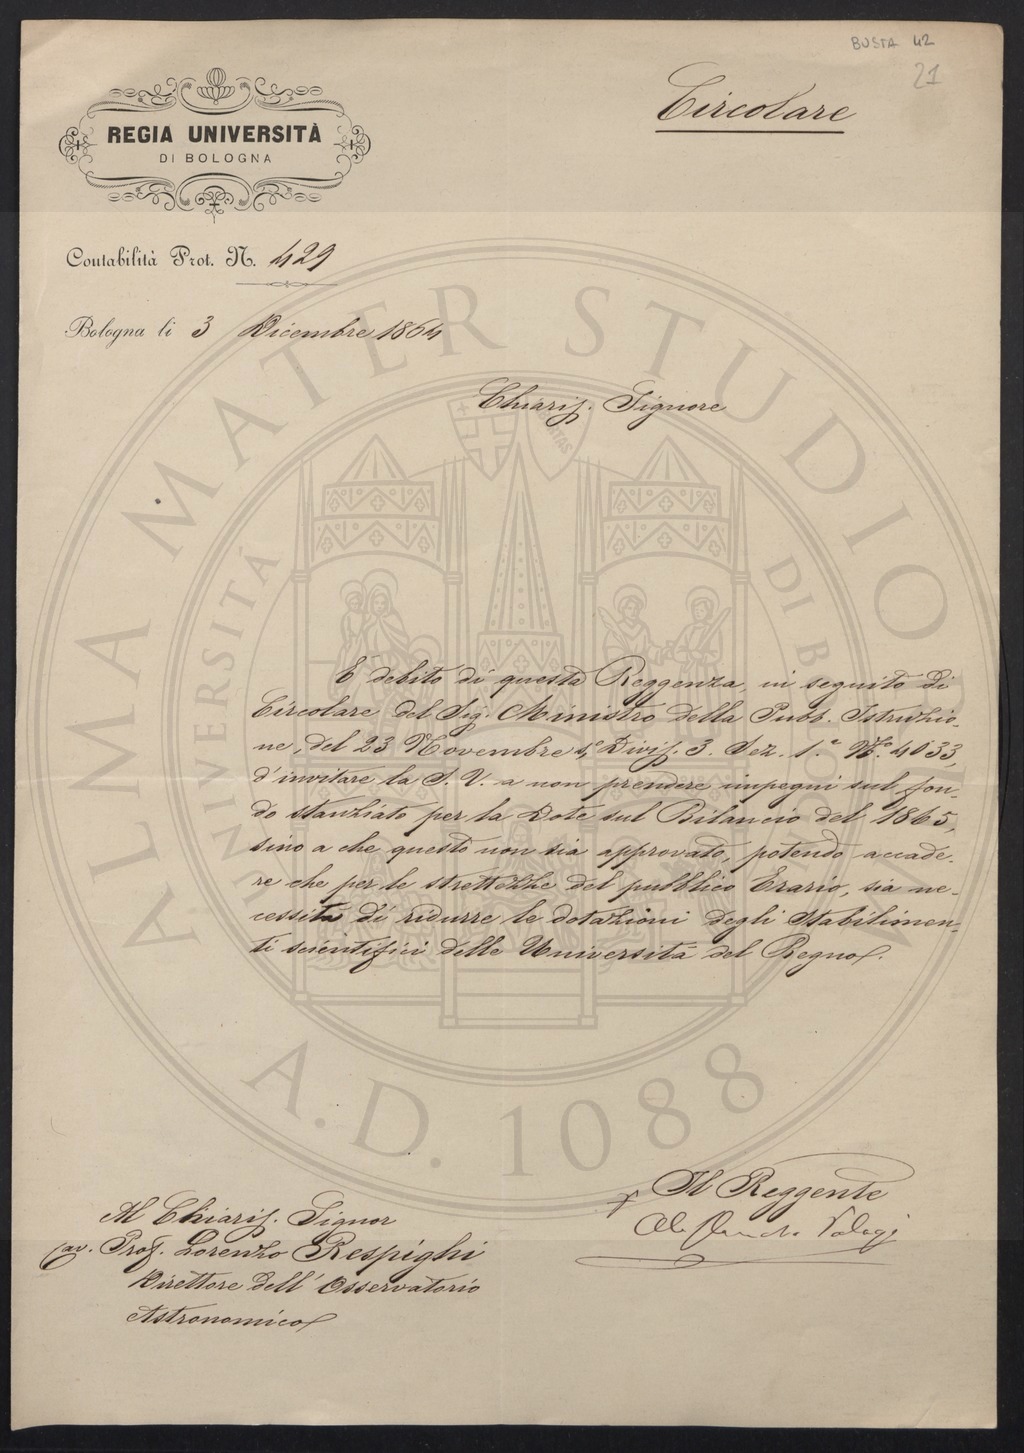 BUSTA 42
21
Circolare
REGIA UNIVERSITÀ
DI BOLOGNA
Contabilità Prot. N. 429
Bologna li 3 Dicembre 1864
Chiariss. Signore
È debito di questa Reggenza, in seguito di
Circolare del Sig. Ministro della Pubb. Istruzio-
ne, del 23 Novembre Divis. 3. Sez. 1.ª N.º 4033,
d'invitare la S. V. a non prendere impegni sul fon-
do stanziato per la Dote sul Bilancio del 1865,
sino a che questo non sia approvato, potendo accade-
re che per le strettezze del pubblico Erario, sia ne-
cessità di ridurre le dotazioni degli Stabilimen-
ti scientifici delle Università del Regno.
Il Reggente
Al Chiariss. Signor
Cav. Prof. Lorenzo Respighi
Direttore dell'Osservatorio
Astronomico
ALMA MATER STUDIORUM
UNIVERSITÀ DI BOLOGNA
A.D. 1088